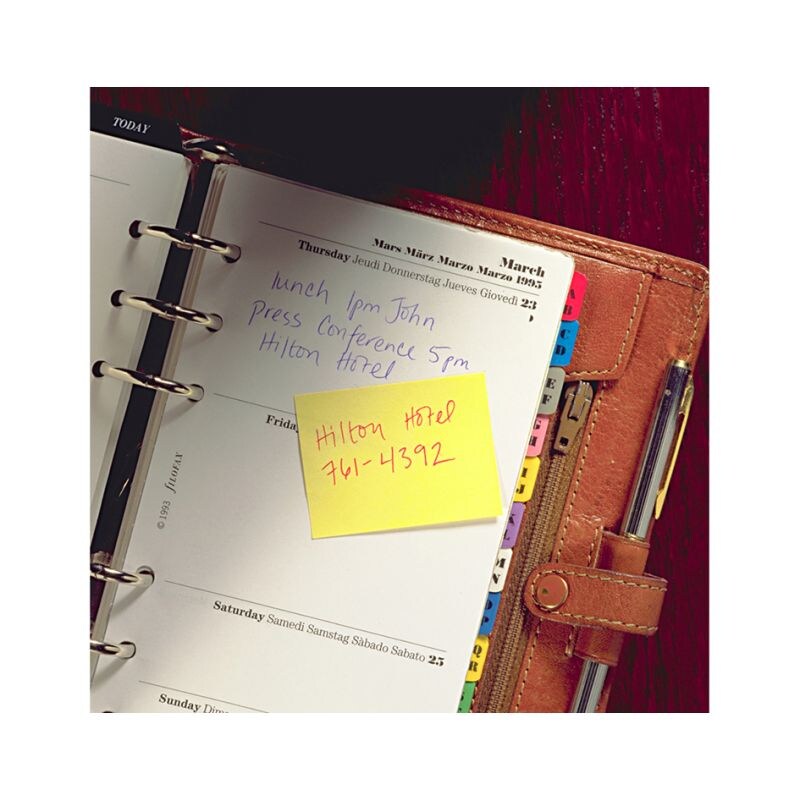 TODAY
March
Mars März Marzo Marzo 1995
Thursday Jeudi Donnerstag Jueves Giovedì 23
lunch 1pm John
Press Conference 5pm
Hilton Hotel
Friday
Hilton Hotel
761-4392
© 1993 FILOFAX
Saturday Samedi Samstag Sàbado Sabato 25
Sunday Dim
A
B
C
D
E
F
G
H
I
J
K
L
M
N
O
P
Q
R